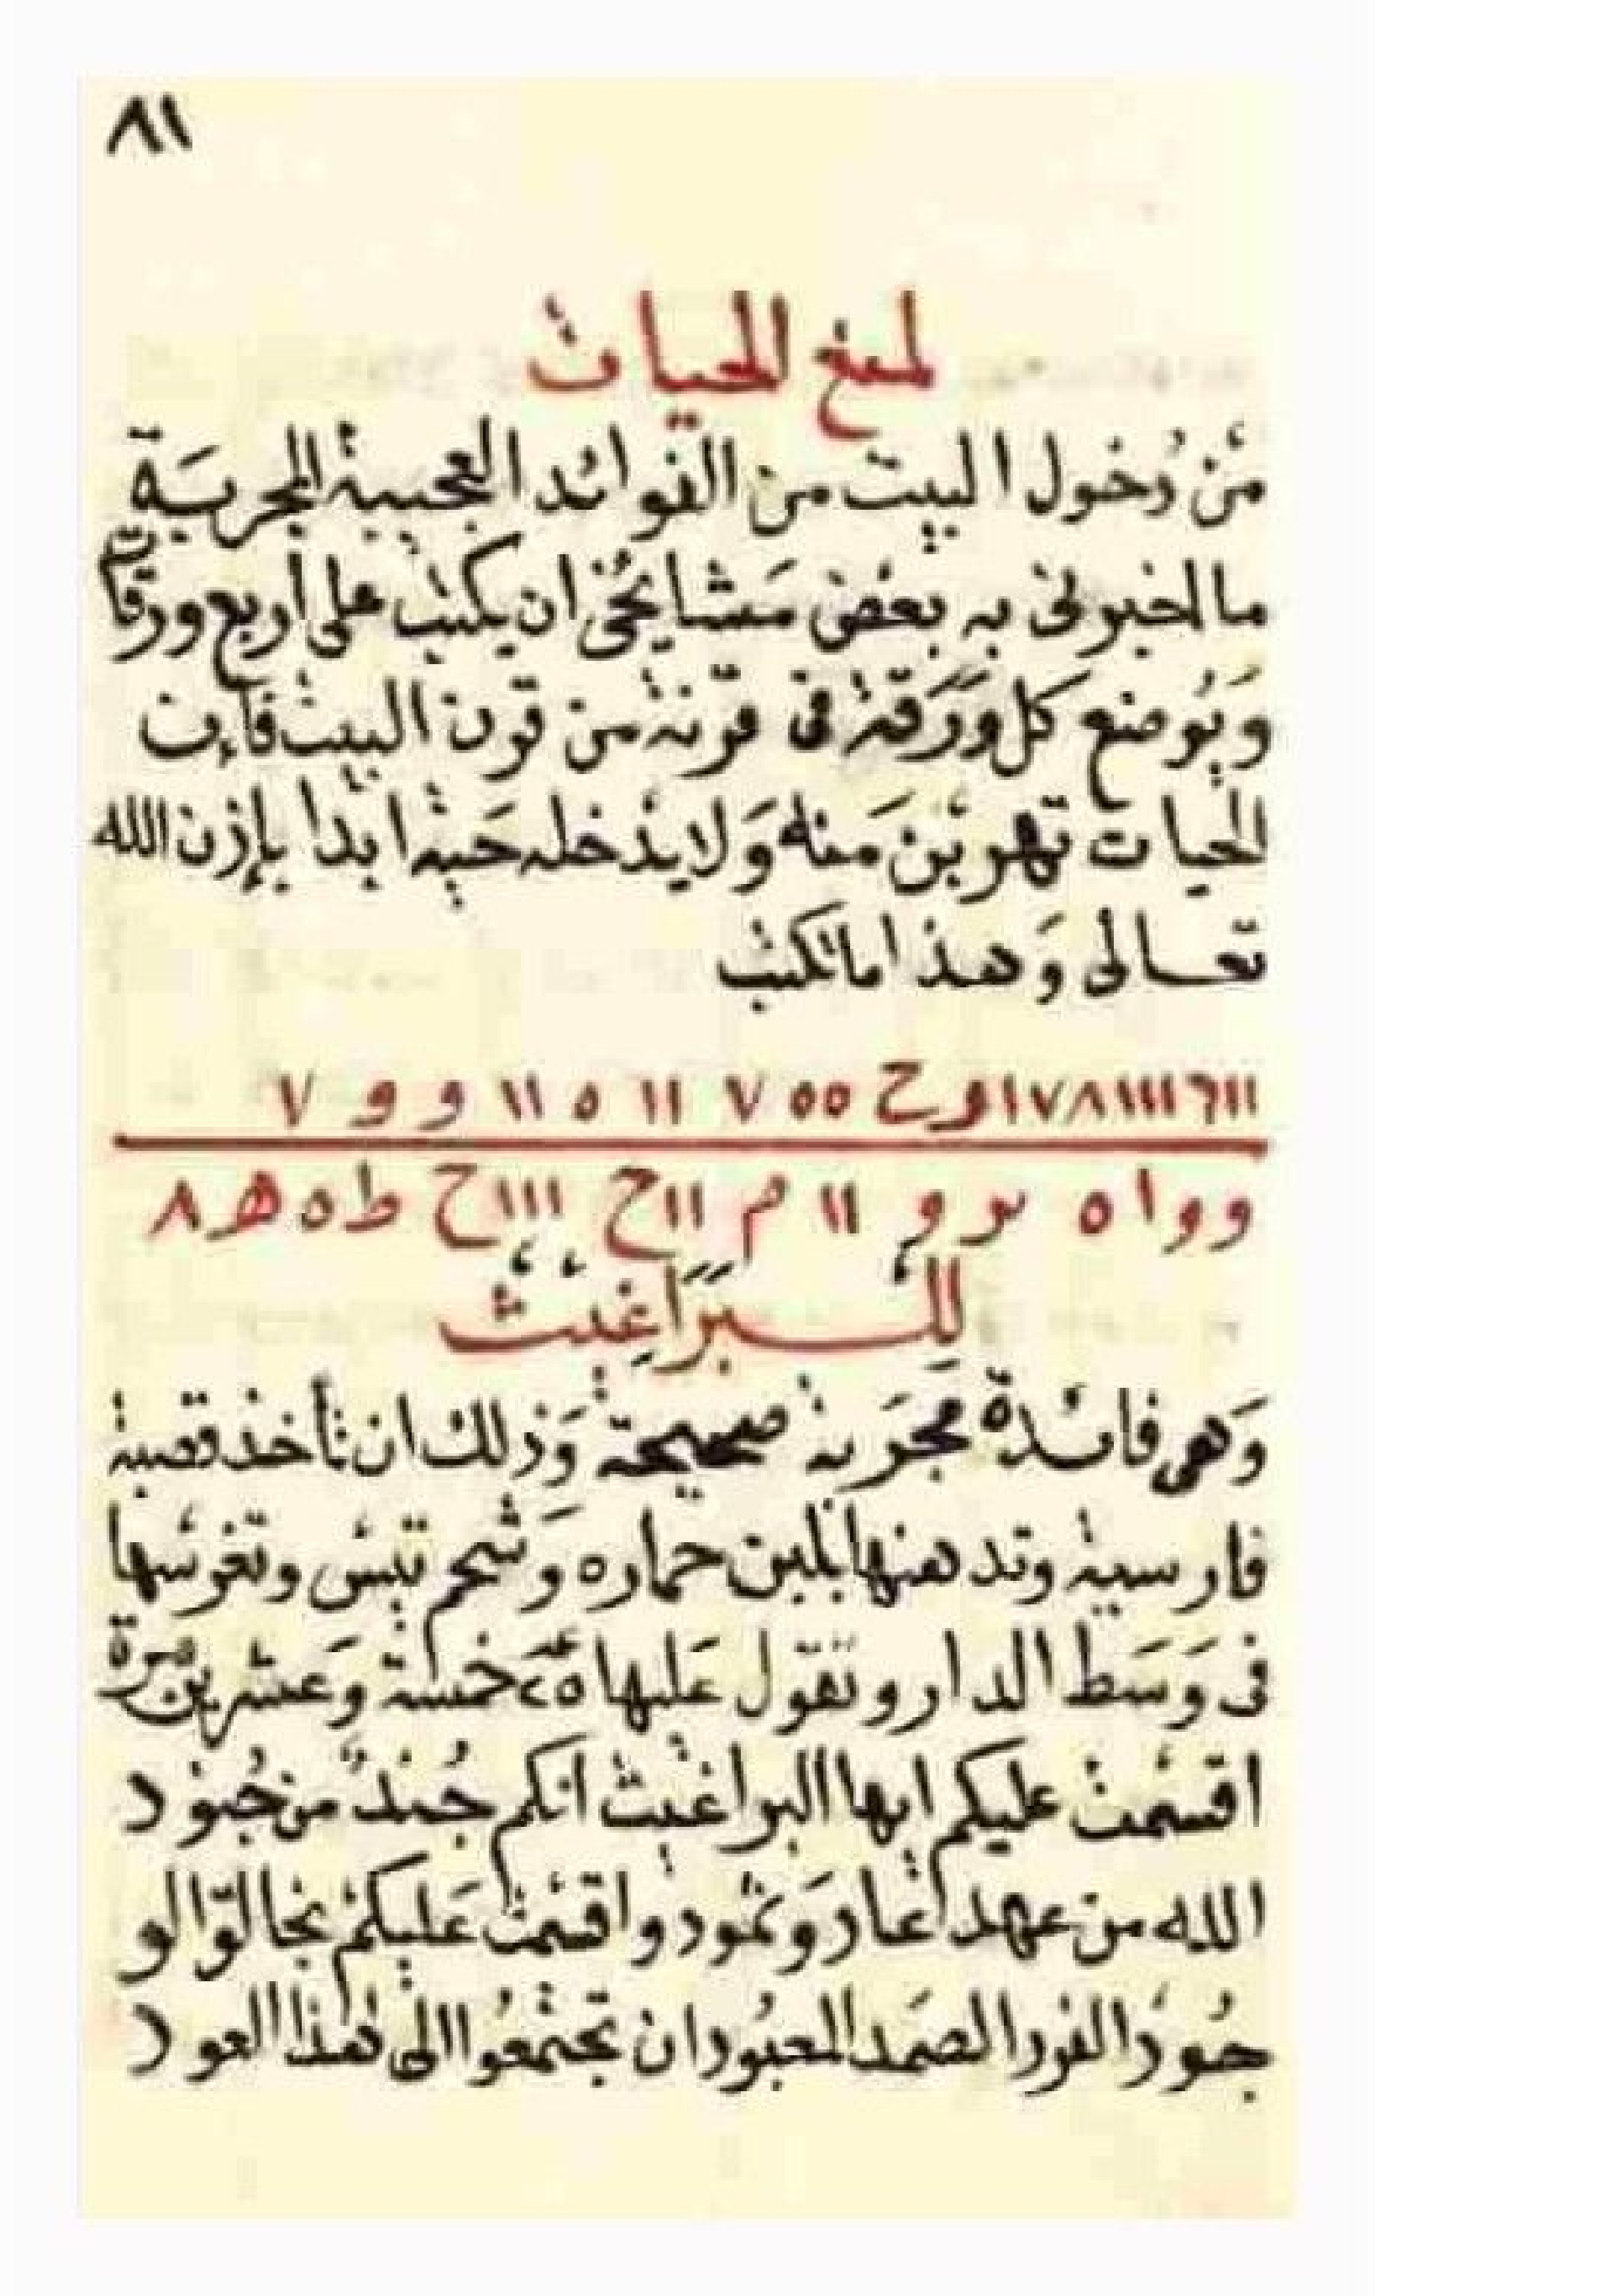 ٨١
لمنع الحيات
مَنْ دُخول البيت من الفوائد العجيبة المجربَة
ما اخبرنى به بعض مَشايخى ان يكتب على أربع ورقات
وَيُوضع كل وَرَقة فى قرنة من قرن البيت فإن
الحيات تهربن مَنه وَلا يدخله حَية ابدا بإذن الله
تعالى وَهذا ما تكتب
١١١٦١١١٨٧١وح ٥٥ ٧ ١١ ٥ ١١ و و ٧
و و ا ٥ ىر و ١١ م ١١ح ١١١ح ط ٥ ه ٨
لِلبَرَاغِيث
وَهى فائدة مجَربة صحيحة وَذلك ان تأخذ قصبة
فارسية وتدهنها بلبن حماره وَشحم تيس وتغرسها
فى وَسَط الدار وتقول عَليها ٢٥ خمسَة وَعشرين مرة
اقسمت عليكم ايها البراغيث انكم جُندٌ من جُنود
الله من عهد عاد وَثمود واقسمت عَليكم بخالق الو
جُود الفرد الصَمد المعبُود ان تجتمعُوا الى هذا العود